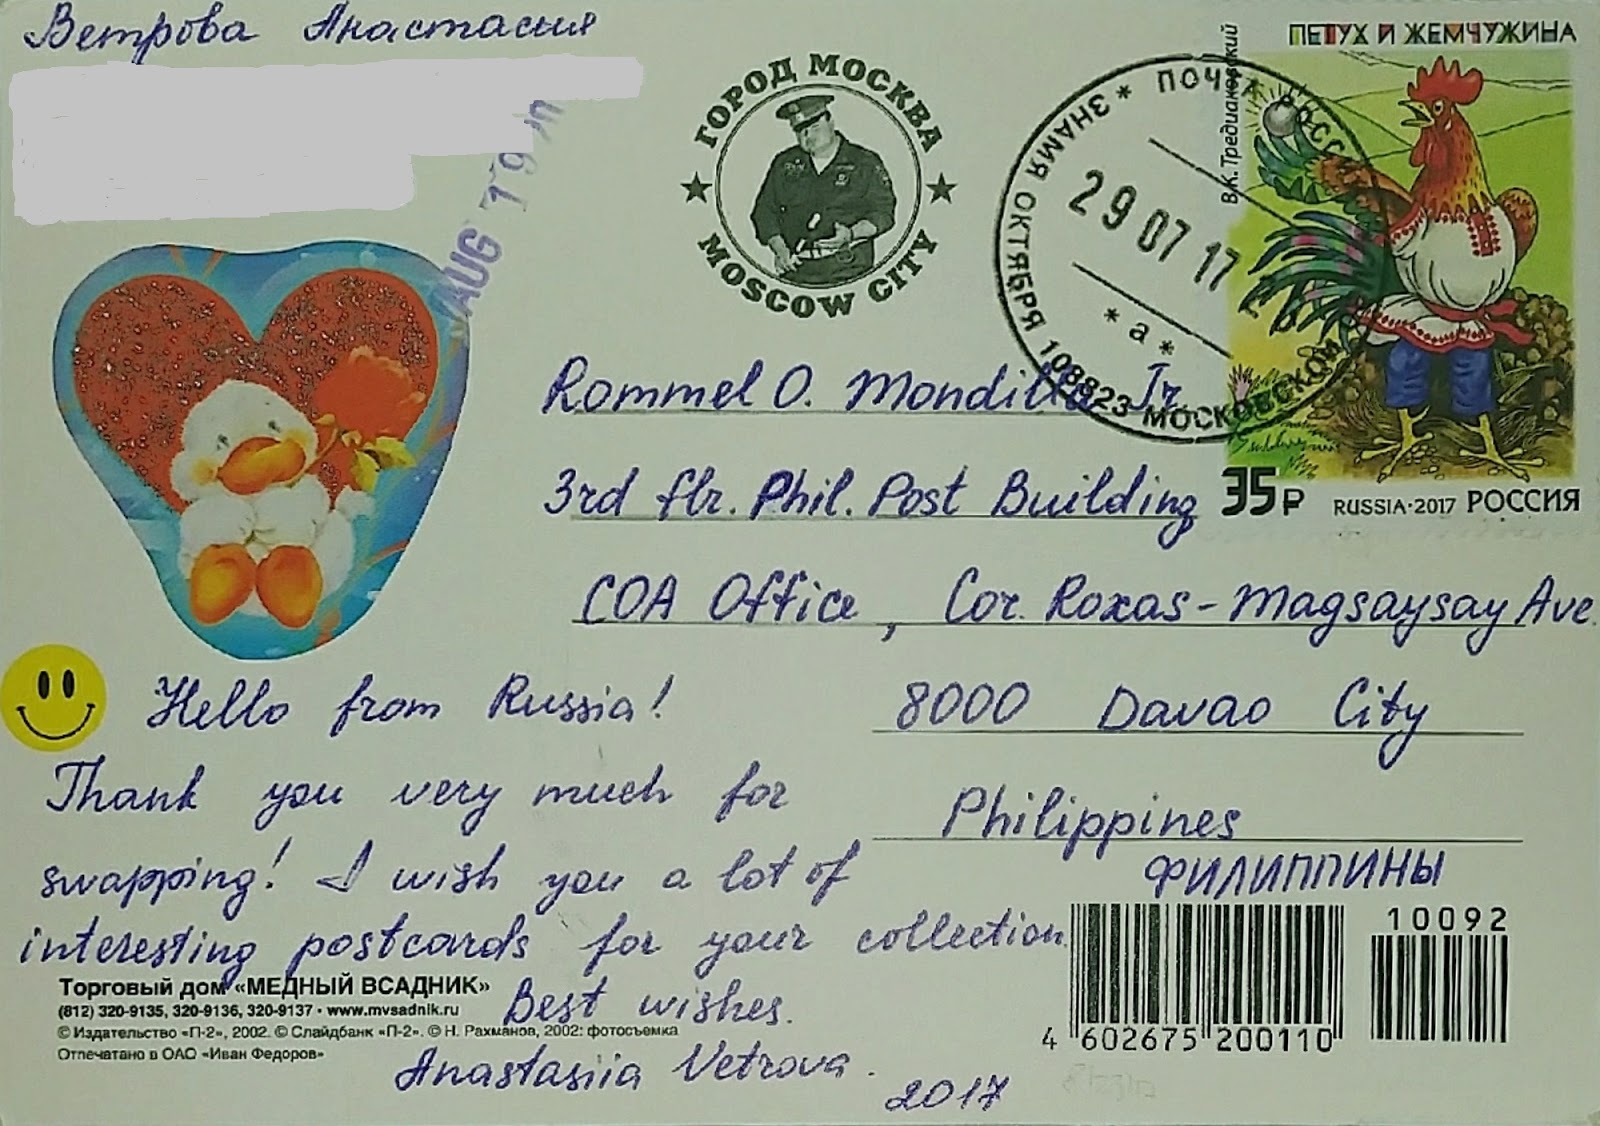 Ветрова Анастасия
AUG 19
ГОРОД МОСКВА
MOSCOW CITY
ПОЧТА РОССИИ
ЗНАМЯ ОКТЯБРЯ 108823 МОСКОВСКОЙ
29 07 17
* а *
ПЕТУХ И ЖЕМЧУЖИНА
В.К. Тредиаковский
35₽ RUSSIA·2017 РОССИЯ
Rommel O. Mondilla Jr.
3rd flr. Phil. Post Building
COA Office, Cor. Roxas-Magsaysay Ave.
8000 Davao City
Philippines
ФИЛИППИНЫ
Hello from Russia!
Thank you very much for
swapping! I wish you a lot of
interesting postcards for your collection.
Best wishes.
Anastasiia Vetrova.
2017
Торговый дом «МЕДНЫЙ ВСАДНИК»
(812) 320-9135, 320-9136, 320-9137 • www.mvsadnik.ru
© Издательство «П-2», 2002. © Слайдбанк «П-2». © Н. Рахманов, 2002: фотосъемка
Отпечатано в ОАО «Иван Федоров»
10092
4 602675 200110